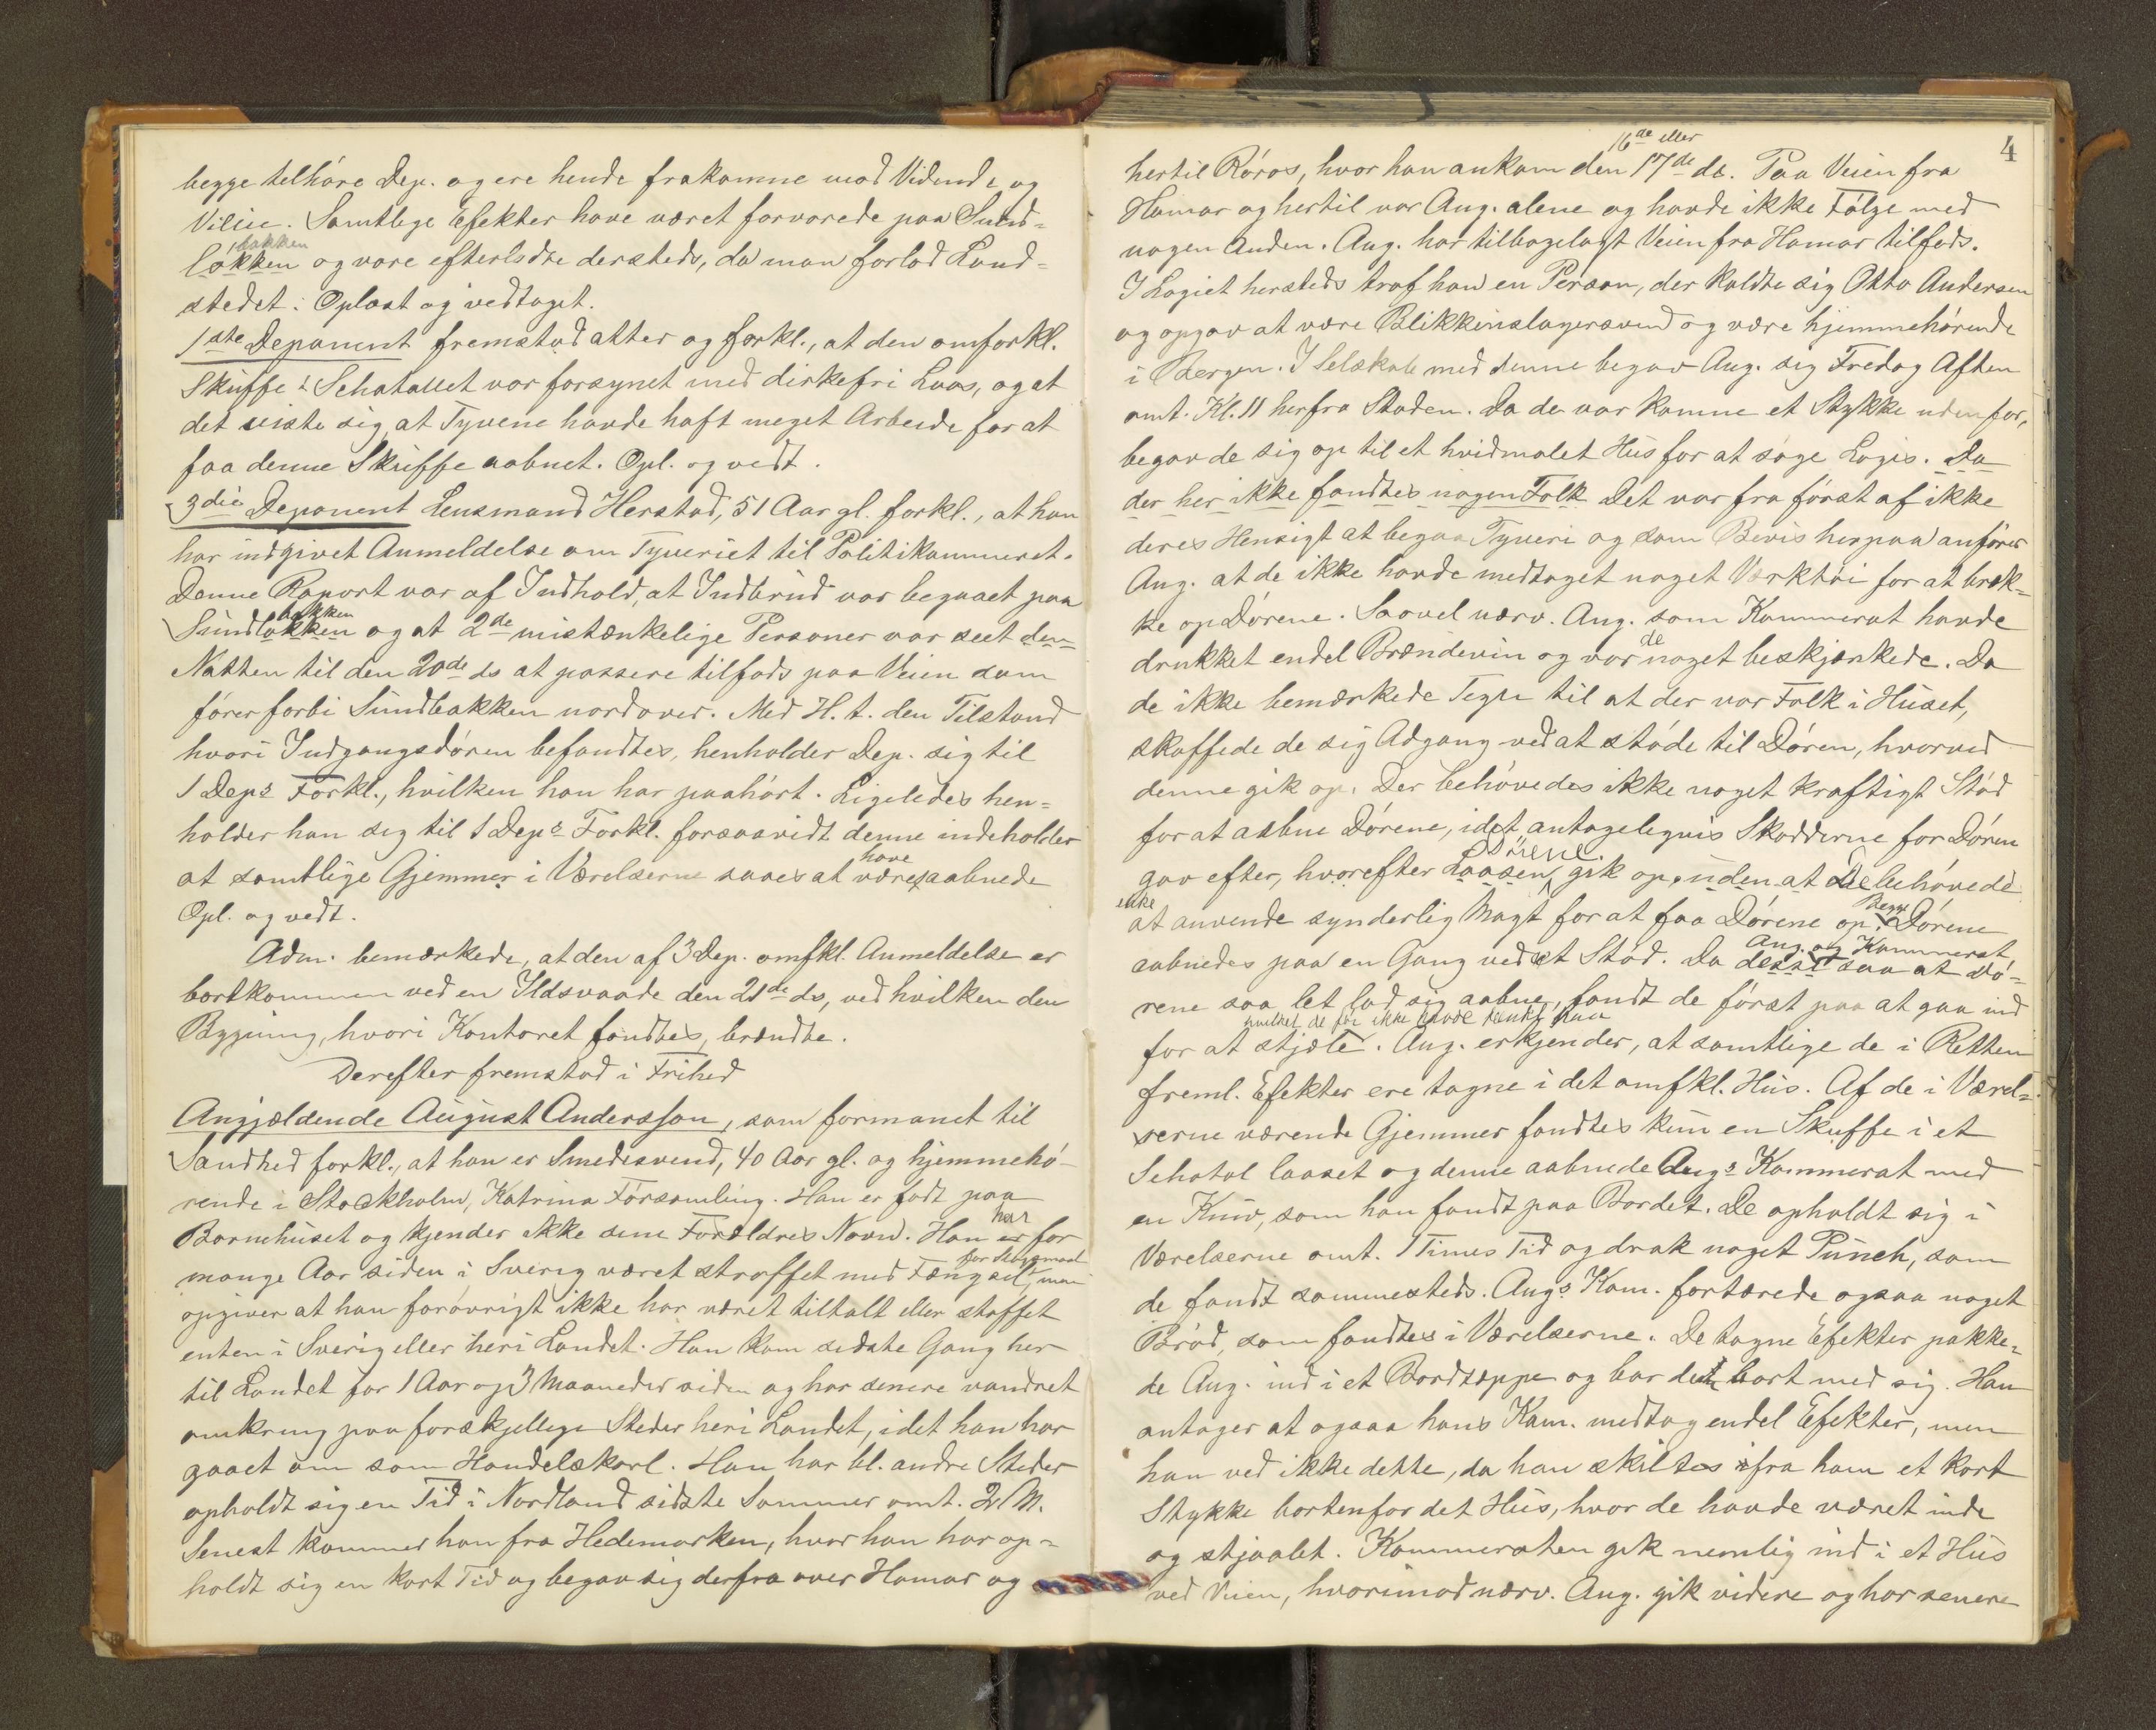 begge tilhöre Dep. og ere hende frakomne mod Vidende og
Vilie. Samtlige Efekter have været forvarede paa Sund-
bakken
løkken og vare efterladte dersteds, da man forlod Land-
stedet. Oplæst og vedtaget.
1ste Deponent fremstod atter og forkl., at den omforkl.
Skuffe i Schatollet var forsynet med dirkefri Laas, og at
det viste sig at Tyvene havde haft meget Arbeide for at
faa denne Skuffe aabnet. Opl. og vedt.
3die Deponent Lensmand Herstad, 51 Aar gl. forkl., at han
har indgivet Anmeldelse om Tyveriet til Politikammeret.
Denne Raport var af Indhold, at Indbrud var begaaet paa
bakken
Sundløkken og at 2de mistænkelige Personer var seet den
Natten til den 20de ds at passere tilfods paa Veien som
förer forbi Sundbakken nordover. Med H. t. den Tilstand
hvori Indgangsdören befandtes, henholder Dep. sig til
1 Deps Forkl., hvilken han har paahört. Ligeledes hen-
holder han sig til 1 Deps Forkl. forsaavidt denne indeholder
have
at samtlige Gjemmer i Værelserne saaes at være aabnede
Opl. og vedt.
Adm. bemærkede, at den af 3 Dep. omfkl. Anmeldelse er
bortkommen ved en Ildsvaade den 21de ds, ved hvilken den
Bygning, hvori Kontoret fandtes, brændte.
Derefter fremstod i Frihed
Angjældende August Andersson, som formanet til
Sandhed forkl., at han er Smedesvend, 40 Aar gl. og hjemmehö-
rende i Stockholm, Katrina Församling. Han er født paa
har
Barnehuset og kjender ikke sine Forældres Navn. Han er for
for Slagsmaal
mange Aar siden i Sverig været straffet med Fængsel, men
opgiver at han forövrigt ikke har været tiltalt eller staffet
enten i Sverig eller her i Landet. Han kom sidste Gang her
til Landet for 1 Aar og 3 Maaneder siden og har senere vandret
omkring paa forskjellige Steder her i Landet, idet han har
gaaet om som Handelskarl. Han har bl. andre Steder
opholdt sig en Tid i Nordland sidste Sommer omt. 2 M.
Senest kommer han fra Hedemarken, hvor han har op-
holdt sig en kort Tid og begav sig derfra over Hamar og
4
16de eller
hertil Röros, hvor han ankom den 17de ds. Paa Veien fra
Hamar og hertil var Ang. alene og havde ikke Fölge med
nogen Anden. Ang. har tilbagelagt Veien fra Hamar tilfods.
I Logiet hersteds traf han en Person, der kaldte sig Otto Andersen
og opgav at være Blikkenslagersvend og være hjemmehörende
i Bergen. I Selskab med denne begav Ang. sig Fredag Aften
omt. Kl. 11 herfra Staden. Da de var komne et Stykke udenfor,
begav de sig op til et hvidmalet Hus for at söge Logis. Da
der her ikke fandtes nogen Folk Det var fra först af ikke
deres Hensigt at begaa Tyveri og som Bevis herpaa anförer
Ang. at de ikke havde medtaget noget Værktöi for at bræk-
ke op Dörene. Saavel nærv. Ang. som Kammerat havde
de
drukket endel Brændevin og var noget beskjænkede. Da
de ikke bemærkede Tegn til at der var Folk i Huset,
skaffede de sig Adgang ved at stöde til Dören, hvorved
denne gik op. Der behövedes ikke noget kraftigt Stöd
for at aabne Dörene, idet antageligvis Skodderne for Dören
Dörene
gav efter, hvorefter Laasen gik op, uden at De behövede
ikke
at anvende synderlig Magt for at faa Dörene op. Begge Dörene
Ang. og Kammerat
aabnedes paa en Gang ved et Stöd. Da disse saa at Dö-
rene saa let lod sig aabne, fandt de först paa at gaa ind
hvilket de för ikke havde tænkt paa
for at stjæle. Ang. erkjender, at samtlige de i Retten
freml. Efekter ere tagne i det omfkl. Hus. Af de i Værel-
serne værende Gjemmer fandtes kun en Skuffe i et
Schatol laaset og denne aabnede Angs Kammerat med
en Kniv, som han fandt paa Bordet. De opholdt sig i
Værelserne omt. 1 Times Tid og drak noget Punch, som
de fandt sammesteds. Angs Kam. fortærede ogsaa noget
Bröd, som fandtes i Værelserne. De tagne Efekter pakke-
de Ang. ind i et Bordtæppe og bar det bort med sig. Han
antager at ogsaa hans Kam. medtog endel Efekter, men
han ved ikke dette, da han skiltes ifra ham et kort
Stykke bortenfor det Hus, hvor de havde været inde
og stjaalet. Kammeraten gik nemlig ind i et Hus
ved Veien, hvorimod nærv. Ang. gik videre og har senere